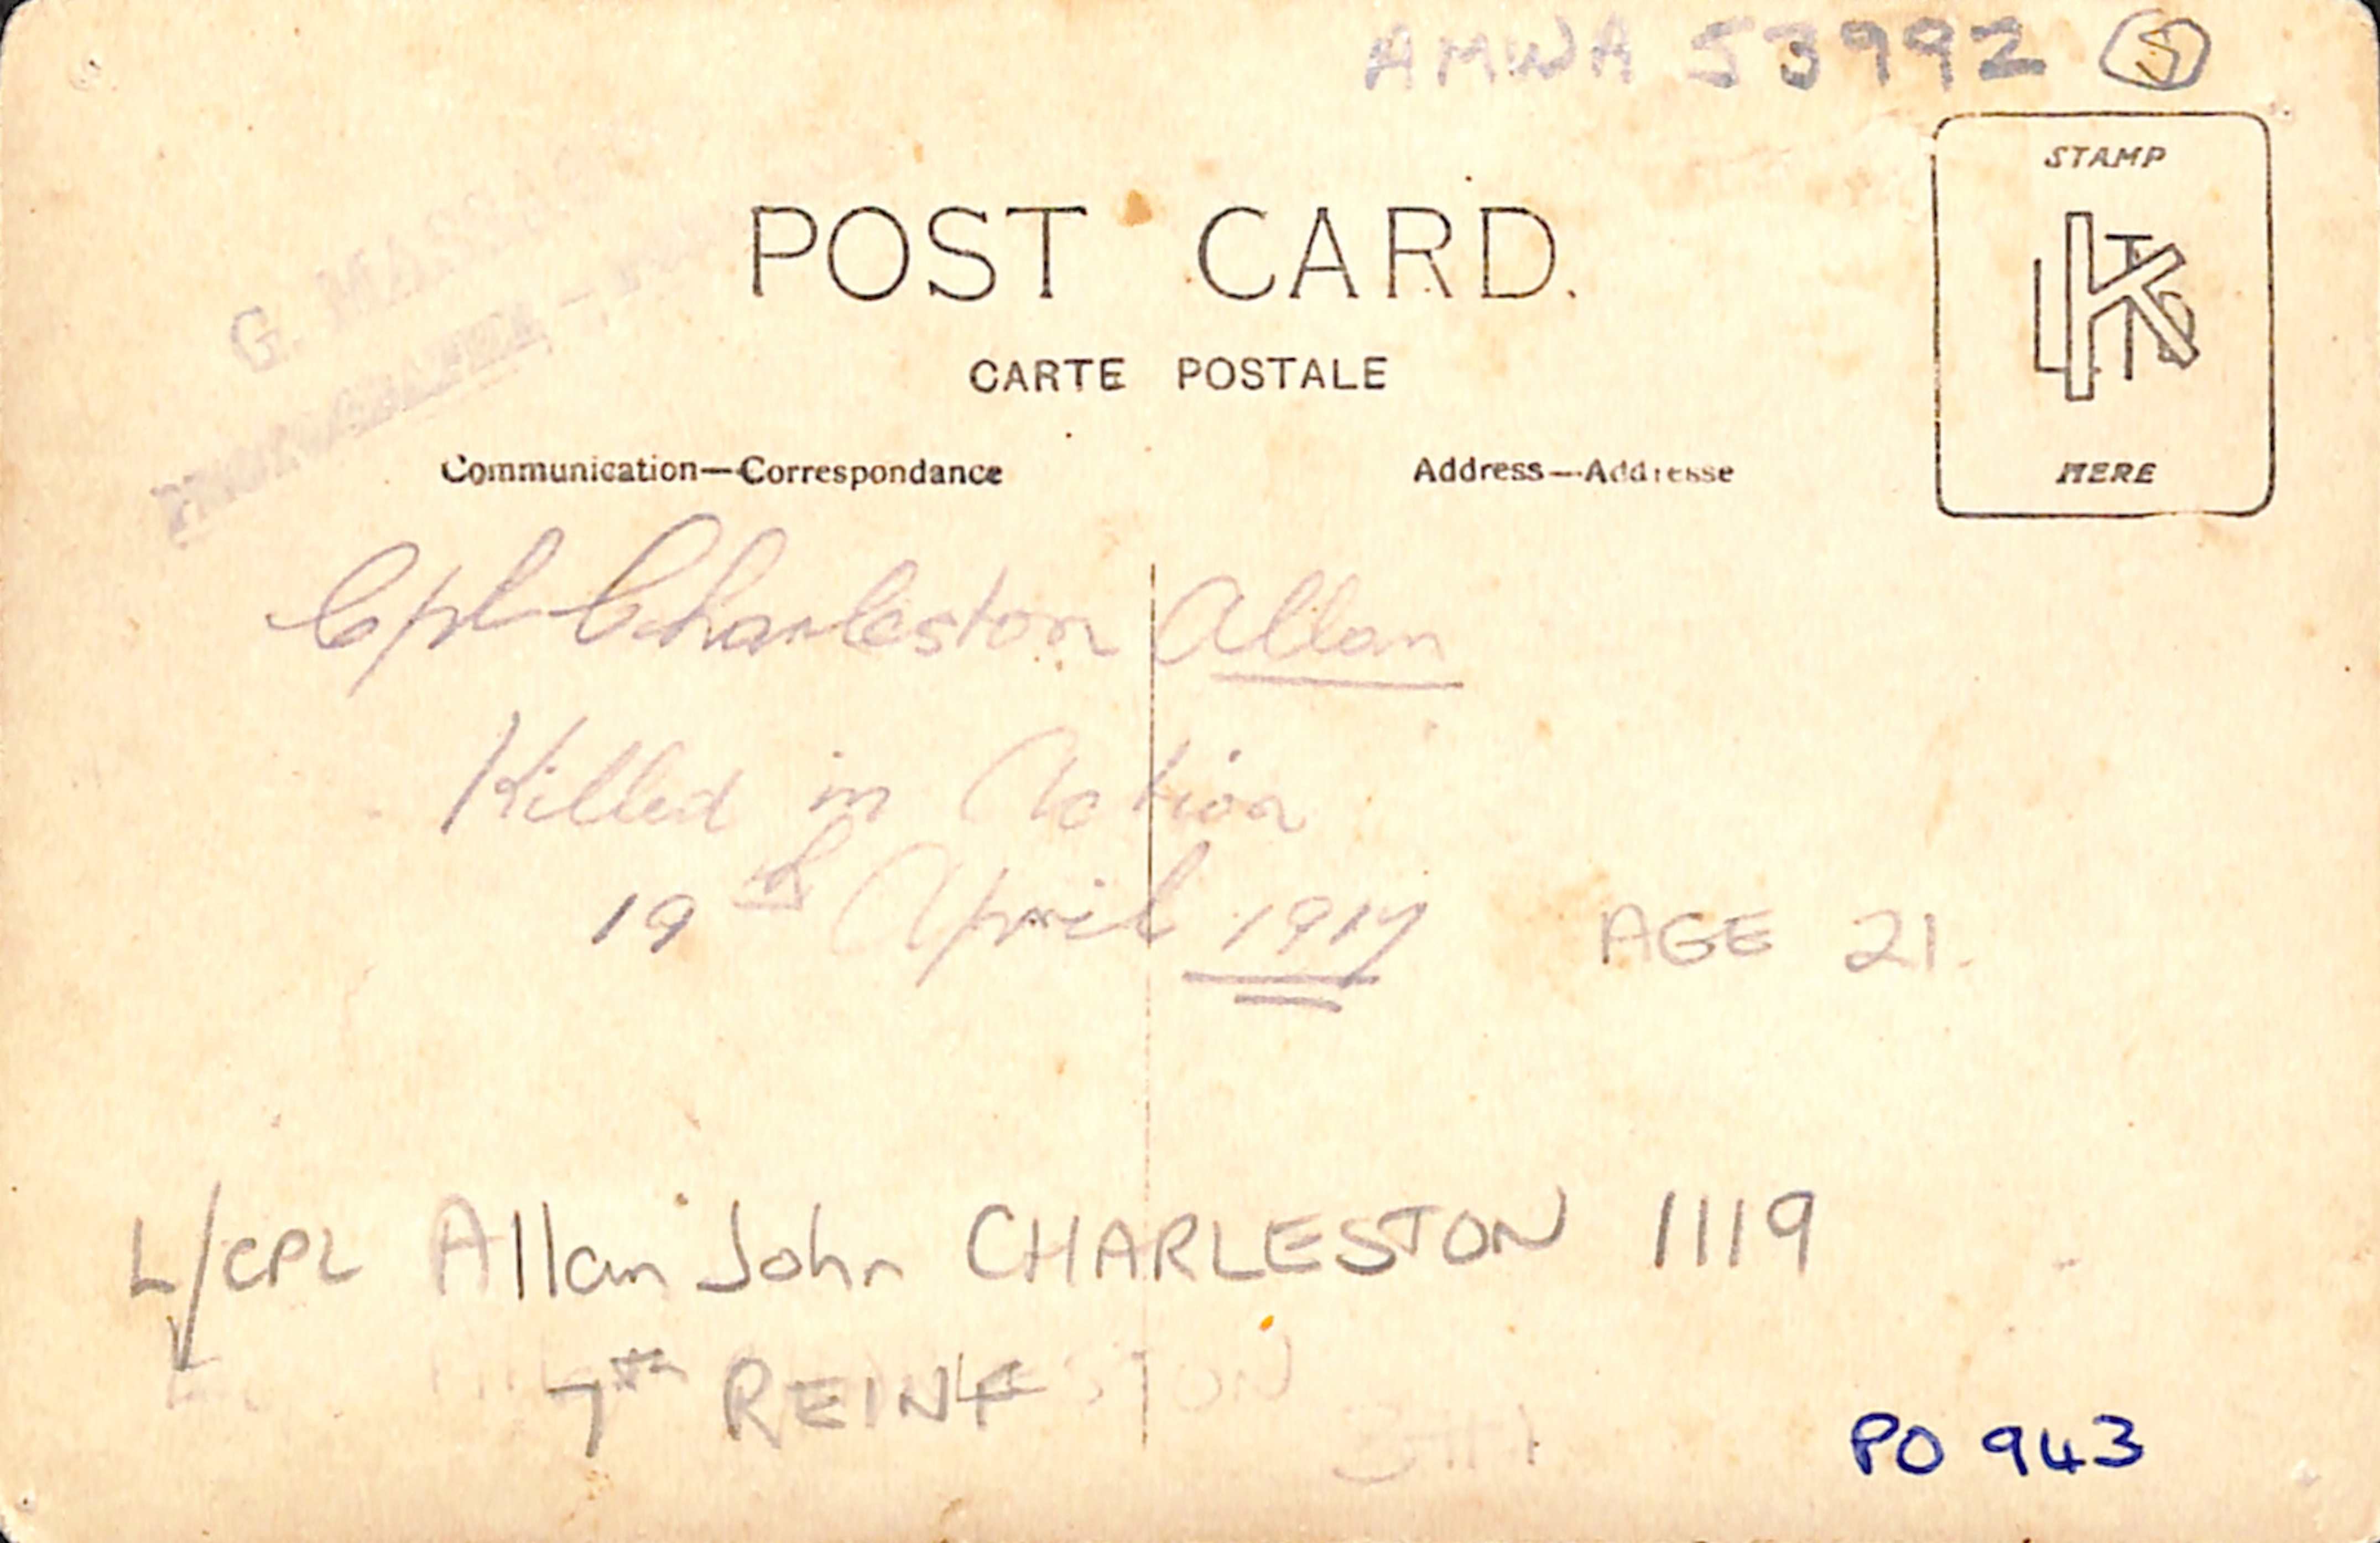 AMWA 53992 5
G. MASSAO
STAMP
POST CARD.
CARTE POSTALE
Communication—Correspondance
Address—Addresse
HERE
Cpl Charleston Allan
Killed in Action
19th April 1917 AGE 21.
L/CPL Allan John CHARLESTON 1119
7TH REINF
PO 943